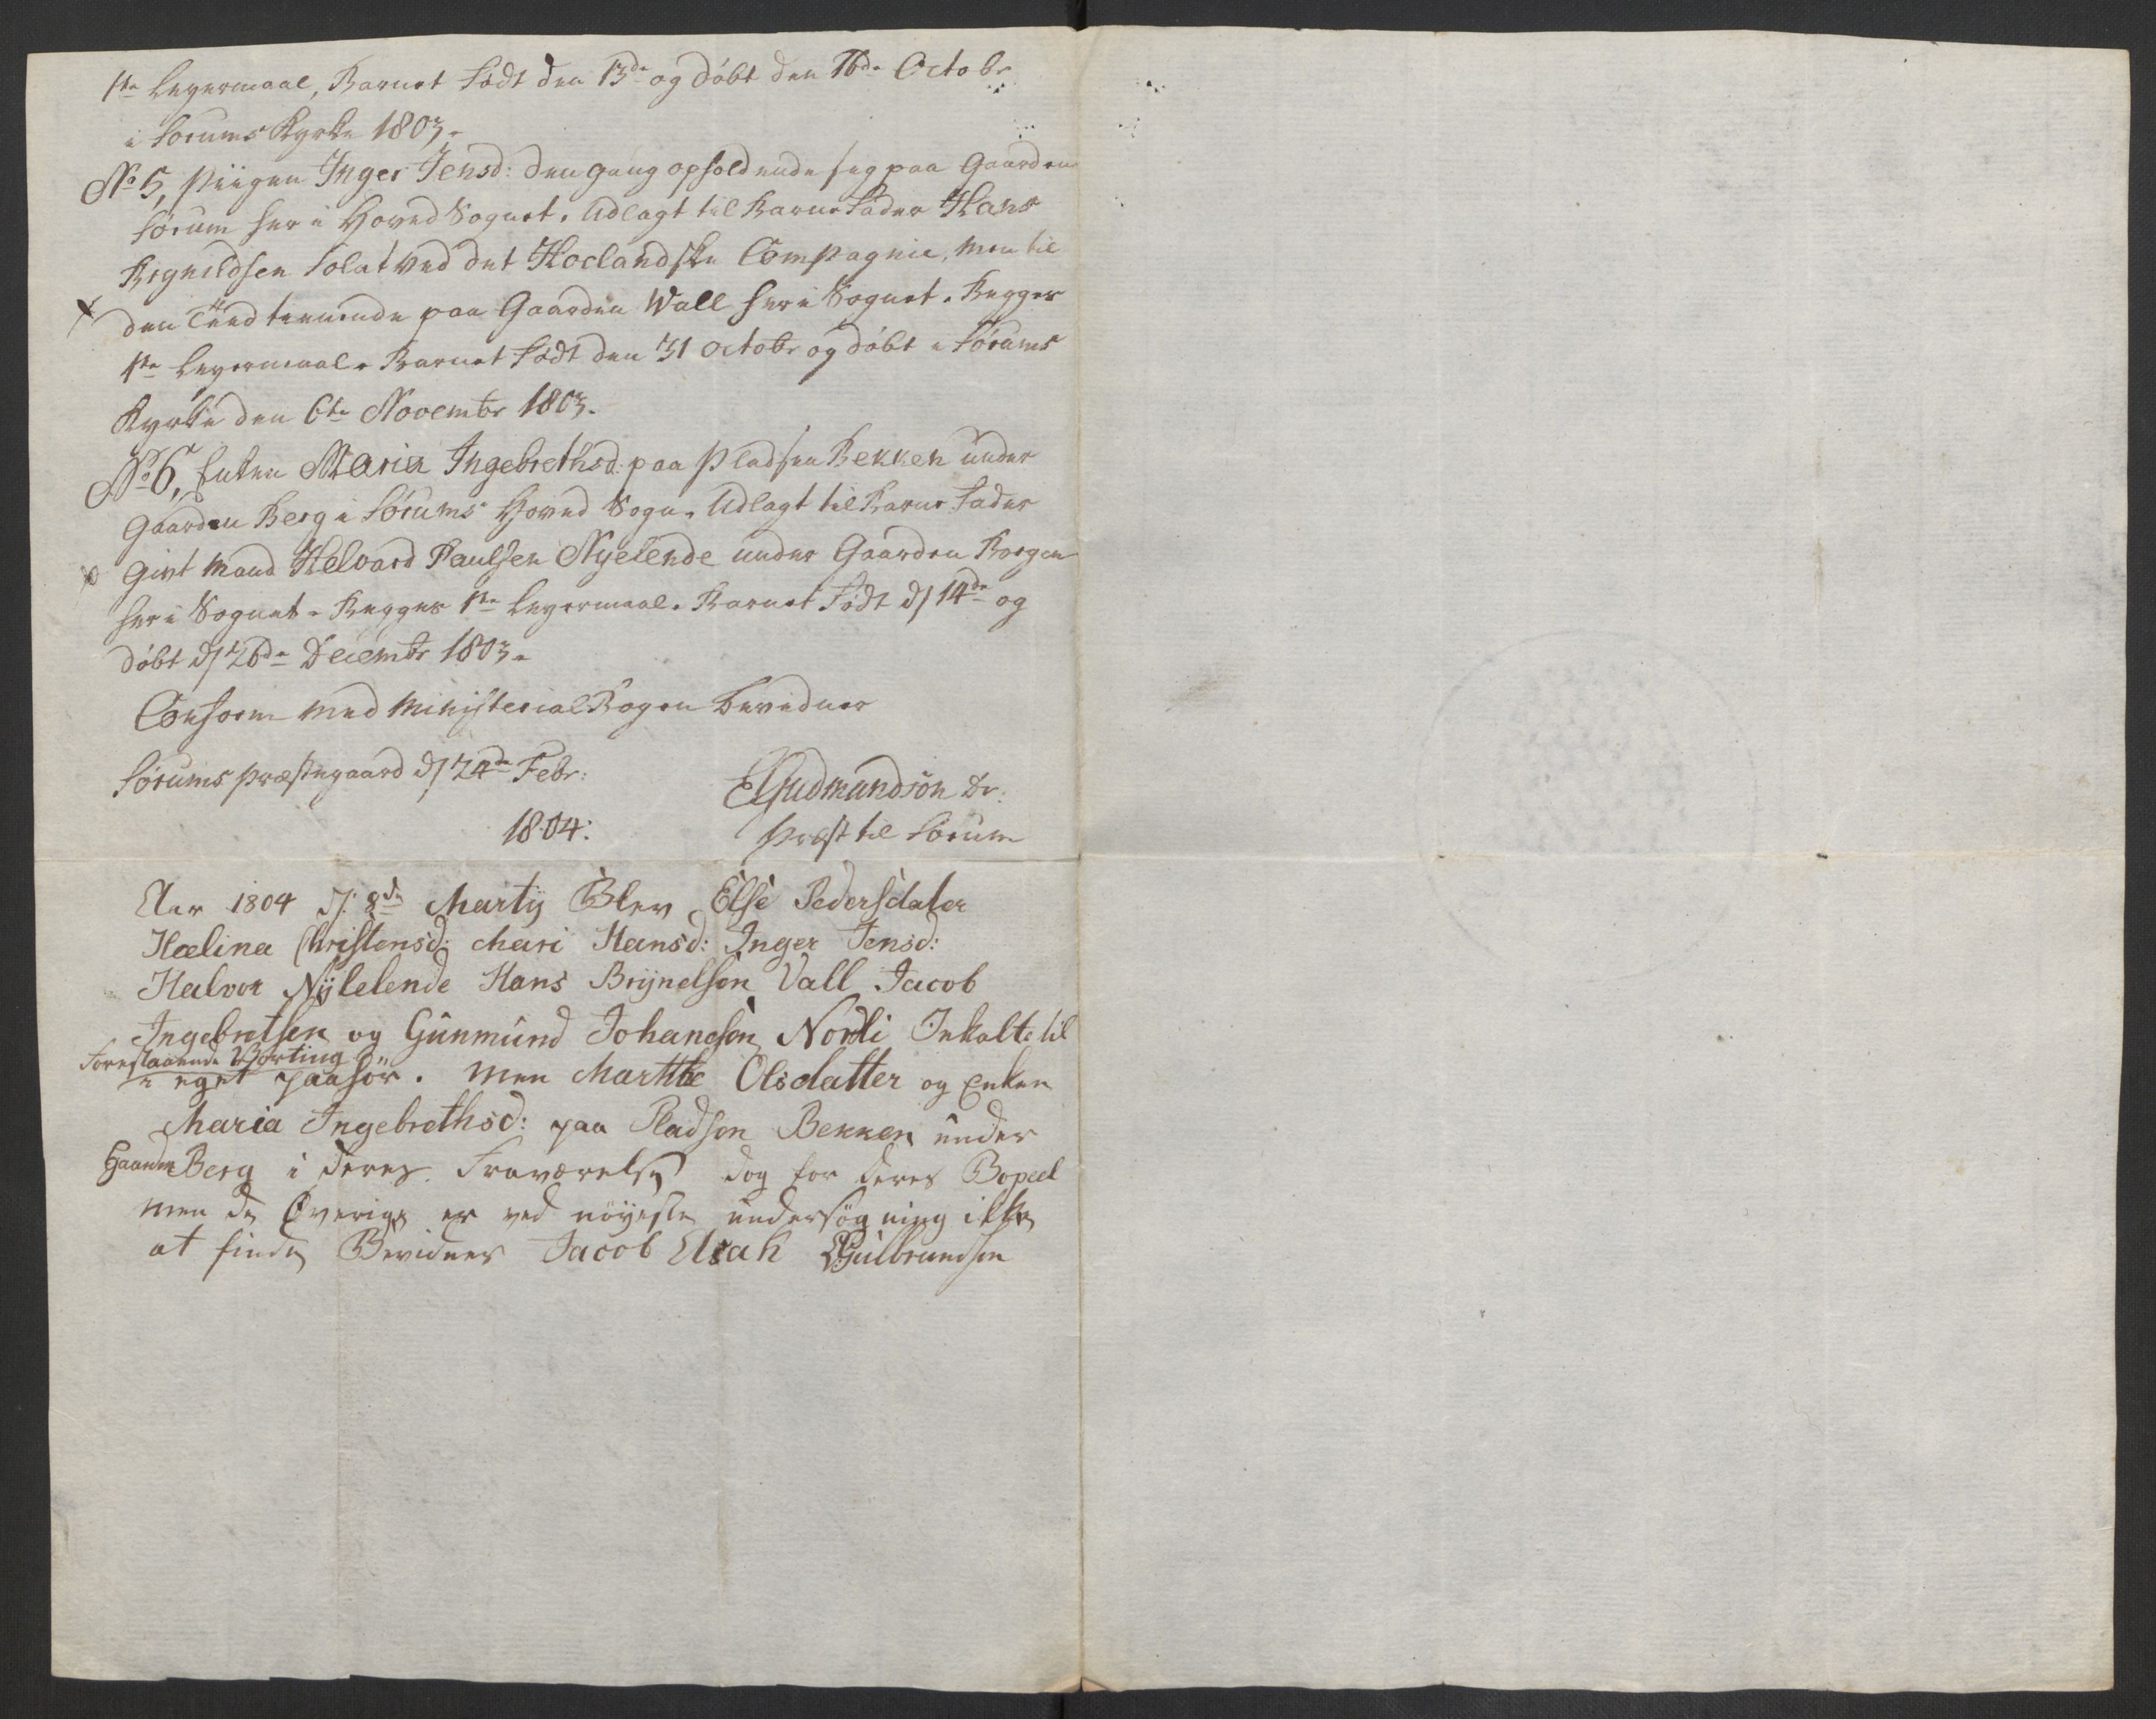 1te Leyermaal, Barnet Født den 13de og døbt den 16de Octobr
i Sørums Kyrke 1803.
No 5, Piigen Inger Jensd: den gang opholdende sig paa Gaarden
Sørum her i Hoved Sognet. Udlagt til Barne Fader Hans
Brynildsen Solat ved det Høelandske Compagnie, men til
den Tiid tienende paa Gaarden Wall her i Sognet. Begges
1te Leyermaal. Barnet Født den 31 Octobr og døbt i Sørums
Kyrke den 6te Novembr 1803.
No 6, Enken Maria Ingebrethsd: paa Pladsen Bekken under
Gaarden Berg i Sørums Hoved Sogn. Udlagt til Barne Fader
Givt Mand Helvard Paulsen Nyelende under Gaarden Borgen
her i Sognet. Begges 1te Leyermaal. Barnet Født d/ 14de og
døbt d/ 26de Decembr 1803.
Conform med Ministerial Bogen bevidner
Sørums Præstegaard d/ 24de Febr:
1804.
EGudmundson Dr.
Præst til Sørum
Aar 1804 d: 8de Martij Blev Else Pedersdater
Hælina Christensd: Mari Hansd: Inger Jensd:
Halvor Nÿlelende Hans Brÿnelsen Vall Jacob
Ingebretsen og Gunmund Johanesen Nordli Inkalte til
Forestaaende Vorting
i eget paahør. Men Marthe Olsdatter og Enken
Maria Ingebrethsd: paa Pladsen Bekken under
Gaarden Berg i deres Fraværelse dog for deres Bopæl
men de Øverige er ved nöyeste undersögning ikke
at finde Bevidner Jacob Asak Gulbrandsen